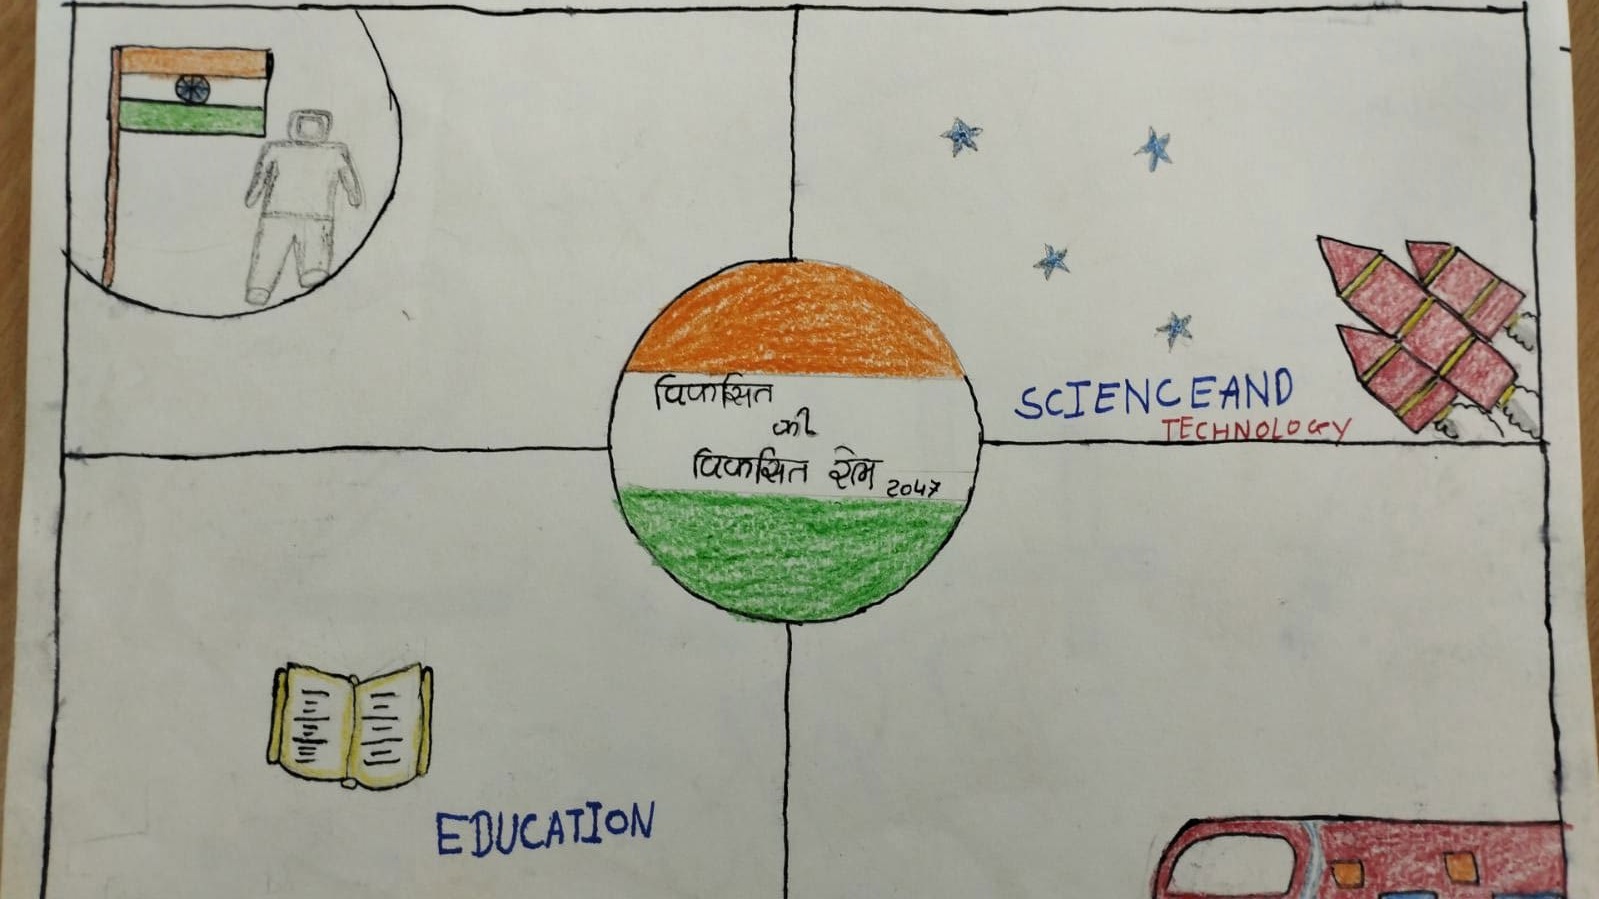 विकसित
की
विकसित
2047
SCIENCE AND
TECHNOLOGY
EDUCATION